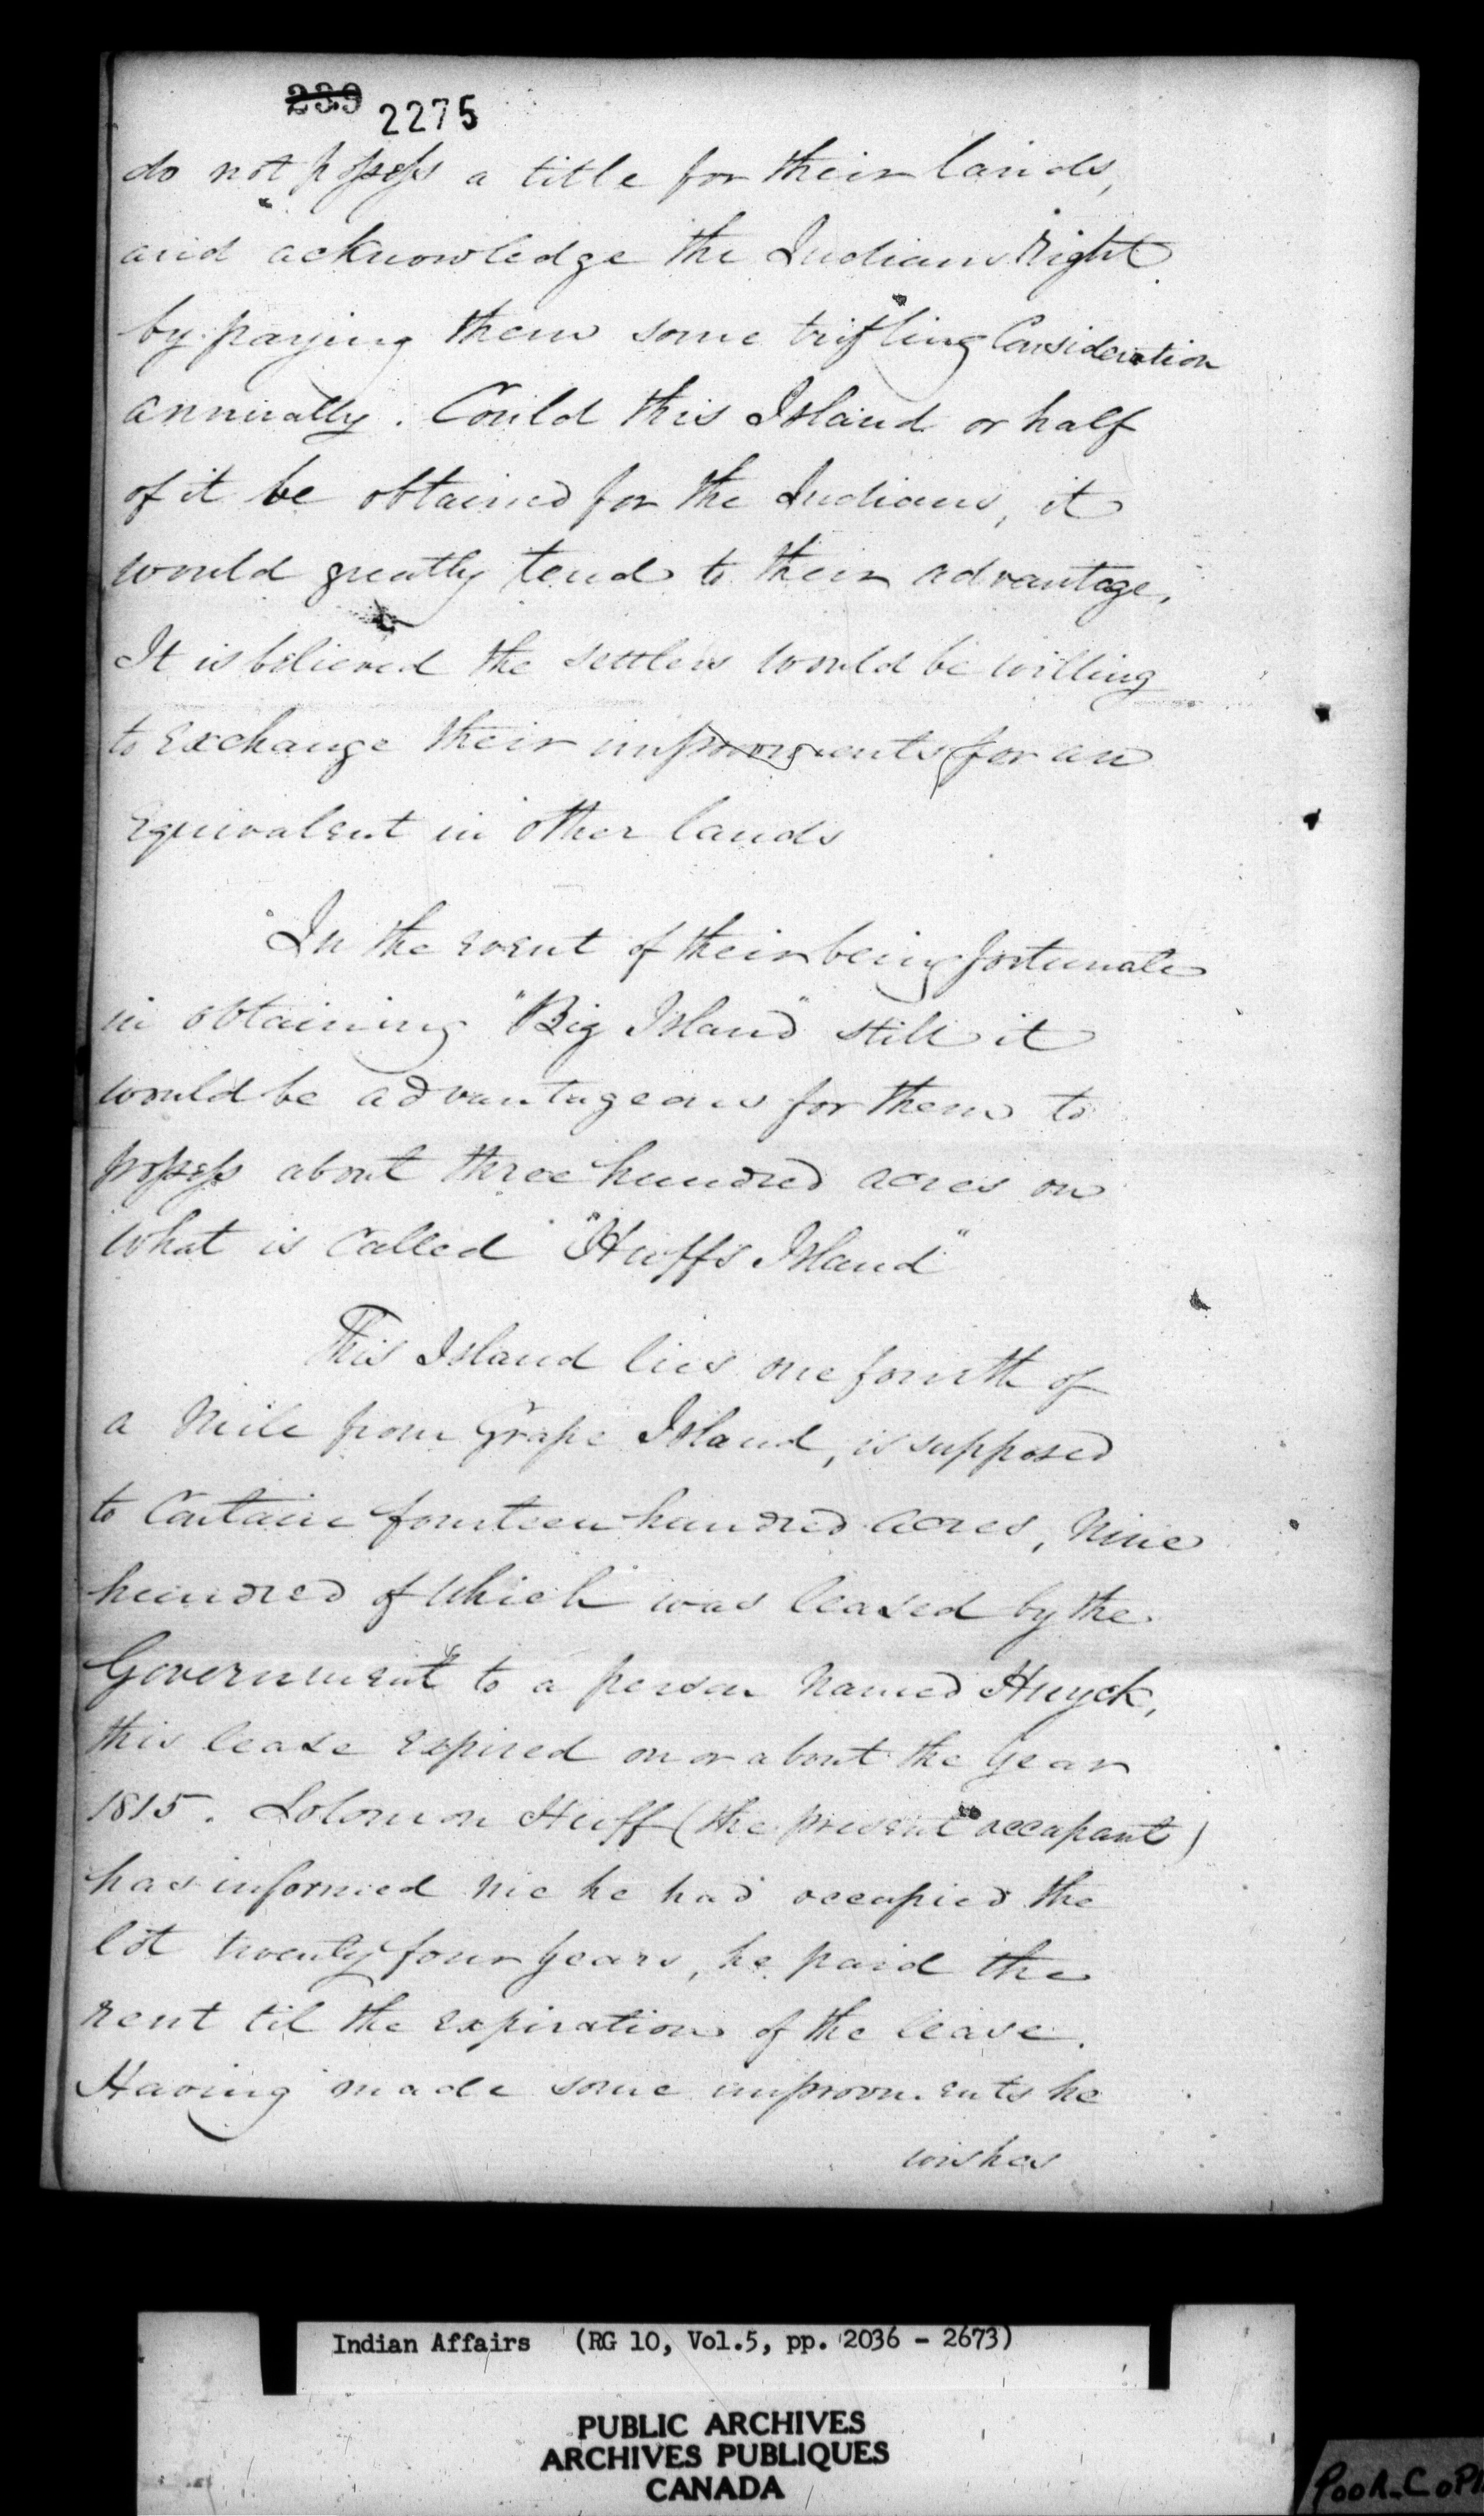 239 2275
do not possess a title for their lands,
and acknowledge the Indians right
by paying them some trifling Consideration
annually. Could this Island or half
of it be obtained for the Indians, it
would greatly tend to their advantage,
It is believed the settlers would be willing
to exchange their improvments for an
equivalent in other lands
In the event of their being fortunate
in obtaining "Big Island" still it
would be advantageous for them to
possess about three hundred acres on
what is called "Huffs Island"
This Island lies one fourth of
a mile from Grape Island, is supposed
to Contain fourteen hundred acres, nine
hundred of which was leased by the
Government to a person named Huyck,
this lease expired on or about the year
1815. Solomon Huff (the present occupant)
has informed me he had occupied the
lot twenty four years, he paid the
rent til the expiration of the lease.
Having made some improvments he
wishes
Indian Affairs (RG 10, Vol.5, pp. 2036 - 2673)
PUBLIC ARCHIVES
ARCHIVES PUBLIQUES
CANADA
POOR COP